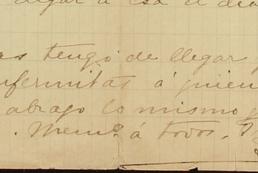 llegar a esa el dia
as tengo de llegar
nfermitas á quien
abrazo lo mismo
. Mem.ª á todos.